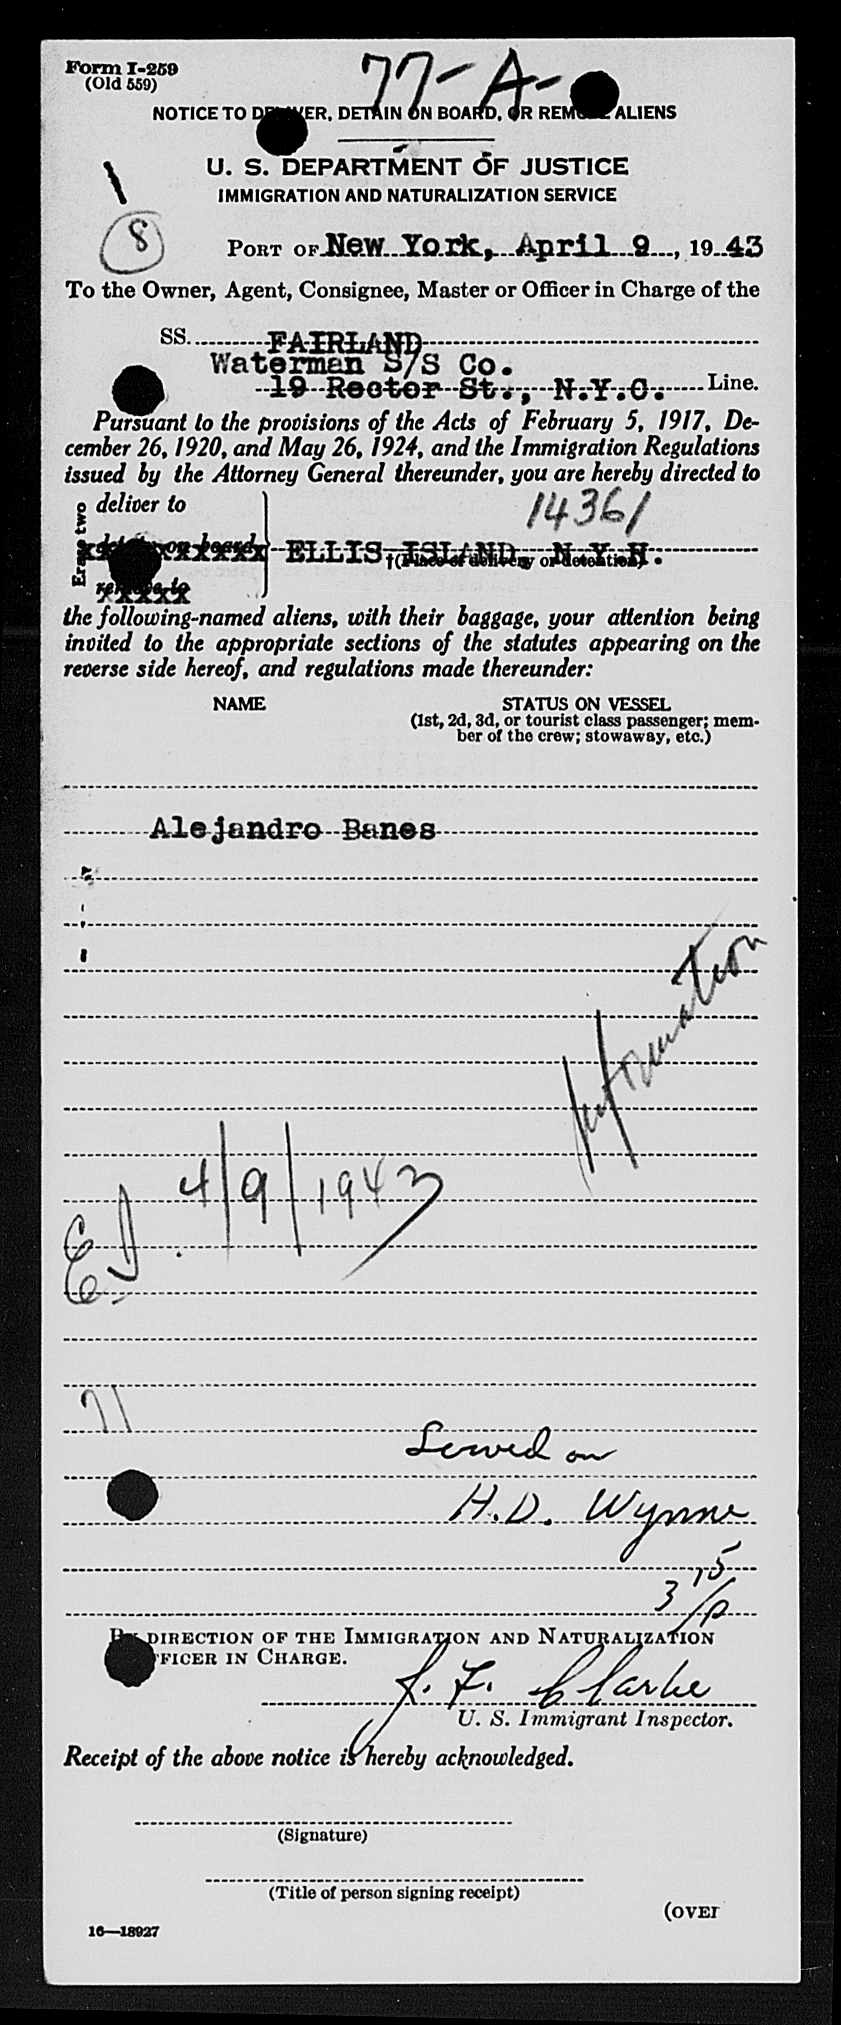 Form I-259
(Old 559)
77-A-
NOTICE TO DELIVER, DETAIN ON BOARD, OR REMOVE ALIENS
U. S. DEPARTMENT OF JUSTICE
IMMIGRATION AND NATURALIZATION SERVICE
8
PORT OF New York, April 9, 1943
To the Owner, Agent, Consignee, Master or Officer in Charge of the
SS. FAIRLAND
Waterman S/S Co.
19 Rector St., N.Y.C. Line.
Pursuant to the provisions of the Acts of February 5, 1917, De-
cember 26, 1920, and May 26, 1924, and the Immigration Regulations
issued by the Attorney General thereunder, you are hereby directed to
Erase two
deliver to
14361
detain on board ELLIS ISLAND, N.Y.H.
†(Place of delivery or detention)
remove to
the following-named aliens, with their baggage, your attention being
invited to the appropriate sections of the statutes appearing on the
reverse side hereof, and regulations made thereunder:
NAME STATUS ON VESSEL
(1st, 2d, 3d, or tourist class passenger; mem-
ber of the crew; stowaway, etc.)
Alejandro Banes
Information
4/9/1943
71
Served on
H.D. Wynne
3 15/P
BY DIRECTION OF THE IMMIGRATION AND NATURALIZATION
OFFICER IN CHARGE.
J. F. Clarke
U. S. Immigrant Inspector.
Receipt of the above notice is hereby acknowledged.
(Signature)
(Title of person signing receipt)
(OVER
16—18927